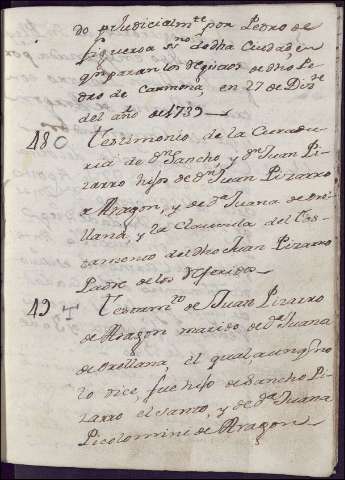 do pr Judicialm.te por Pedro de
figueroa ss.no de dha Ciudad, en
qn paran los Registros de dho Pe-
dro de Carmona, en 27 de Diz.re
del año de 1739
480 Testimonio de la Curadu-
ria de dn Sancho, y dn Juan Pi-
zarro hijos de dn Juan Pizarro
de Aragon, y de da Juana de Ore-
llana, y la Clausula del Tes-
tamento del dho Juan Pizarro
Padre de los Referidos
49 Testam.to de Juan Pizarro
de Aragon marido de da Juana
de Orellana, el qual, aunq no
lo dice, fue hijo de Sancho Pi-
zarro el Santo, y de da Juana
Picolomini de Aragon